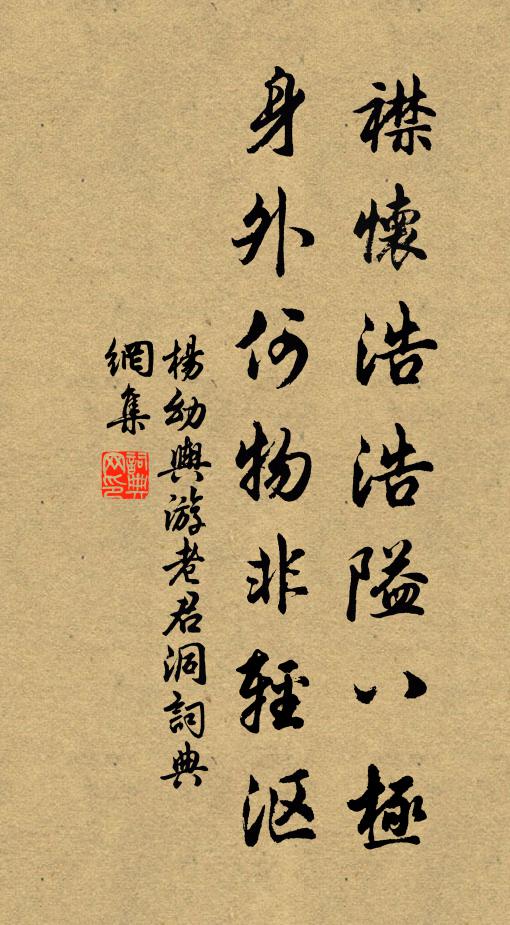 襟懷浩浩隘八極
身外何物非輕漚
楊幼輿游老君洞詞典
網集
詞典网印